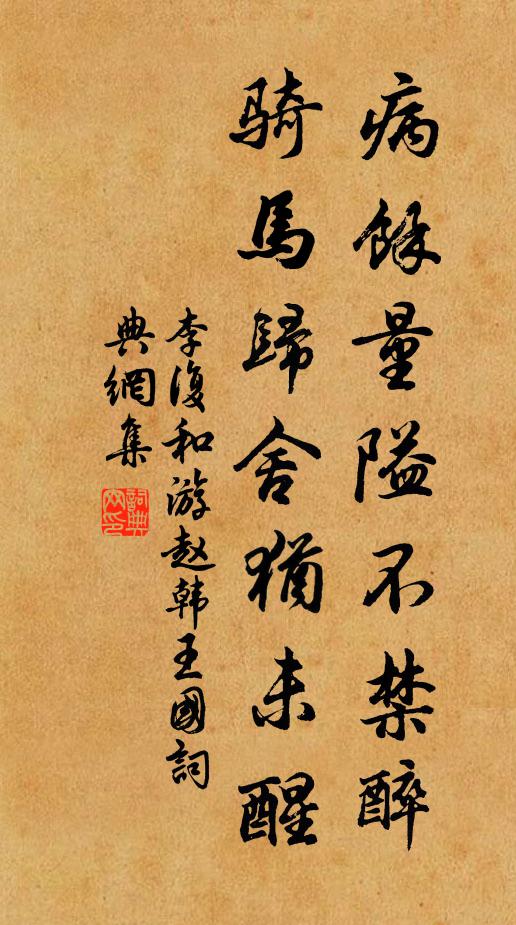 病餘量隘不禁醉
騎馬歸舍猶未醒
李復和游赵韩王國詞
典網集
詞典網印